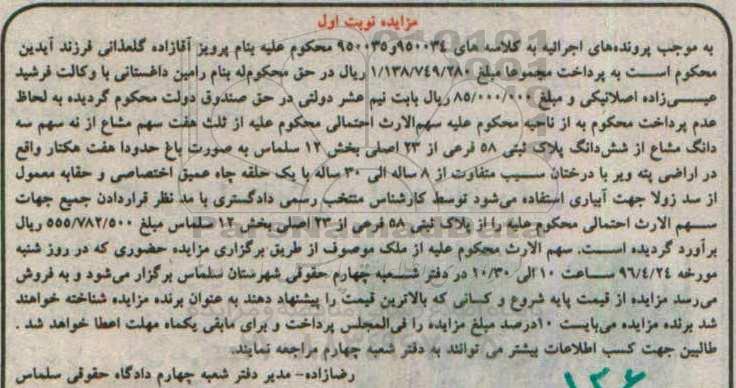 مزایده نوبت اول
به موجب پرونده‌های اجرائیه به کلاسه های ۹۵۰۰۳۴و۹۵۰۰۳۵ محکوم علیه بنام پرویز آقازاده گلعذانی فرزند آیدین
محکوم است به پرداخت مجموعا مبلغ ۱/۱۳۸/۷۴۹/۲۸۰ ریال در حق محکوم‌له بنام رامین داغستانی با وکالت فرشید
عیسی‌زاده اصلانیکی و مبلغ ۸۵/۰۰۰/۰۰۰ ریال بابت نیم عشر دولتی در حق صندوق دولت محکوم گردیده به لحاظ
عدم پرداخت محکوم به از ناحیه محکوم علیه سهم‌الارث احتمالی محکوم علیه از ثلث هفت سهم مشاع از نه سهم سه
دانگ مشاع از شش‌دانگ پلاک ثبتی ۵۸ فرعی از ۲۳ اصلی بخش ۱۲ سلماس به صورت باغ حدودا هفت هکتار واقع
در اراضی پته ویر با درختان سیب متفاوت از ۸ ساله الی ۳۰ ساله با یک حلقه چاه عمیق اختصاصی و حقابه معمول
از سد زولا جهت آبیاری استفاده می‌شود توسط کارشناس منتخب رسمی دادگستری با مد نظر قراردادن جمیع جهات
سهم الارث احتمالی محکوم علیه را از پلاک ثبتی ۵۸ فرعی از ۲۳ اصلی بخش ۱۲ سلماس مبلغ ۵۵۵/۷۸۲/۵۰۰ ریال
برآورد گردیده است. سهم الارث محکوم علیه از ملک موصوف از طریق برگزاری مزایده حضوری که در روز شنبه
مورخه ۹۶/۴/۲۴ ساعت ۱۰ الی ۱۰/۳۰ در دفتر شعبه چهارم حقوقی شهرستان سلماس برگزار می‌شود و به فروش
می‌رسد مزایده از قیمت پایه شروع و کسانی که بالاترین قیمت را پیشنهاد دهند به عنوان برنده مزایده شناخته خواهند
شد برنده مزایده می‌بایست ۱۰درصد مبلغ مزایده را فی‌المجلس پرداخت و برای مابقی یکماه مهلت اعطا خواهد شد .
طالبین جهت کسب اطلاعات پیشتر می توانند به دفتر شعبه چهارم مراجعه نمایند.
رضازاده- مدیر دفتر شعبه چهارم دادگاه حقوقی سلماس